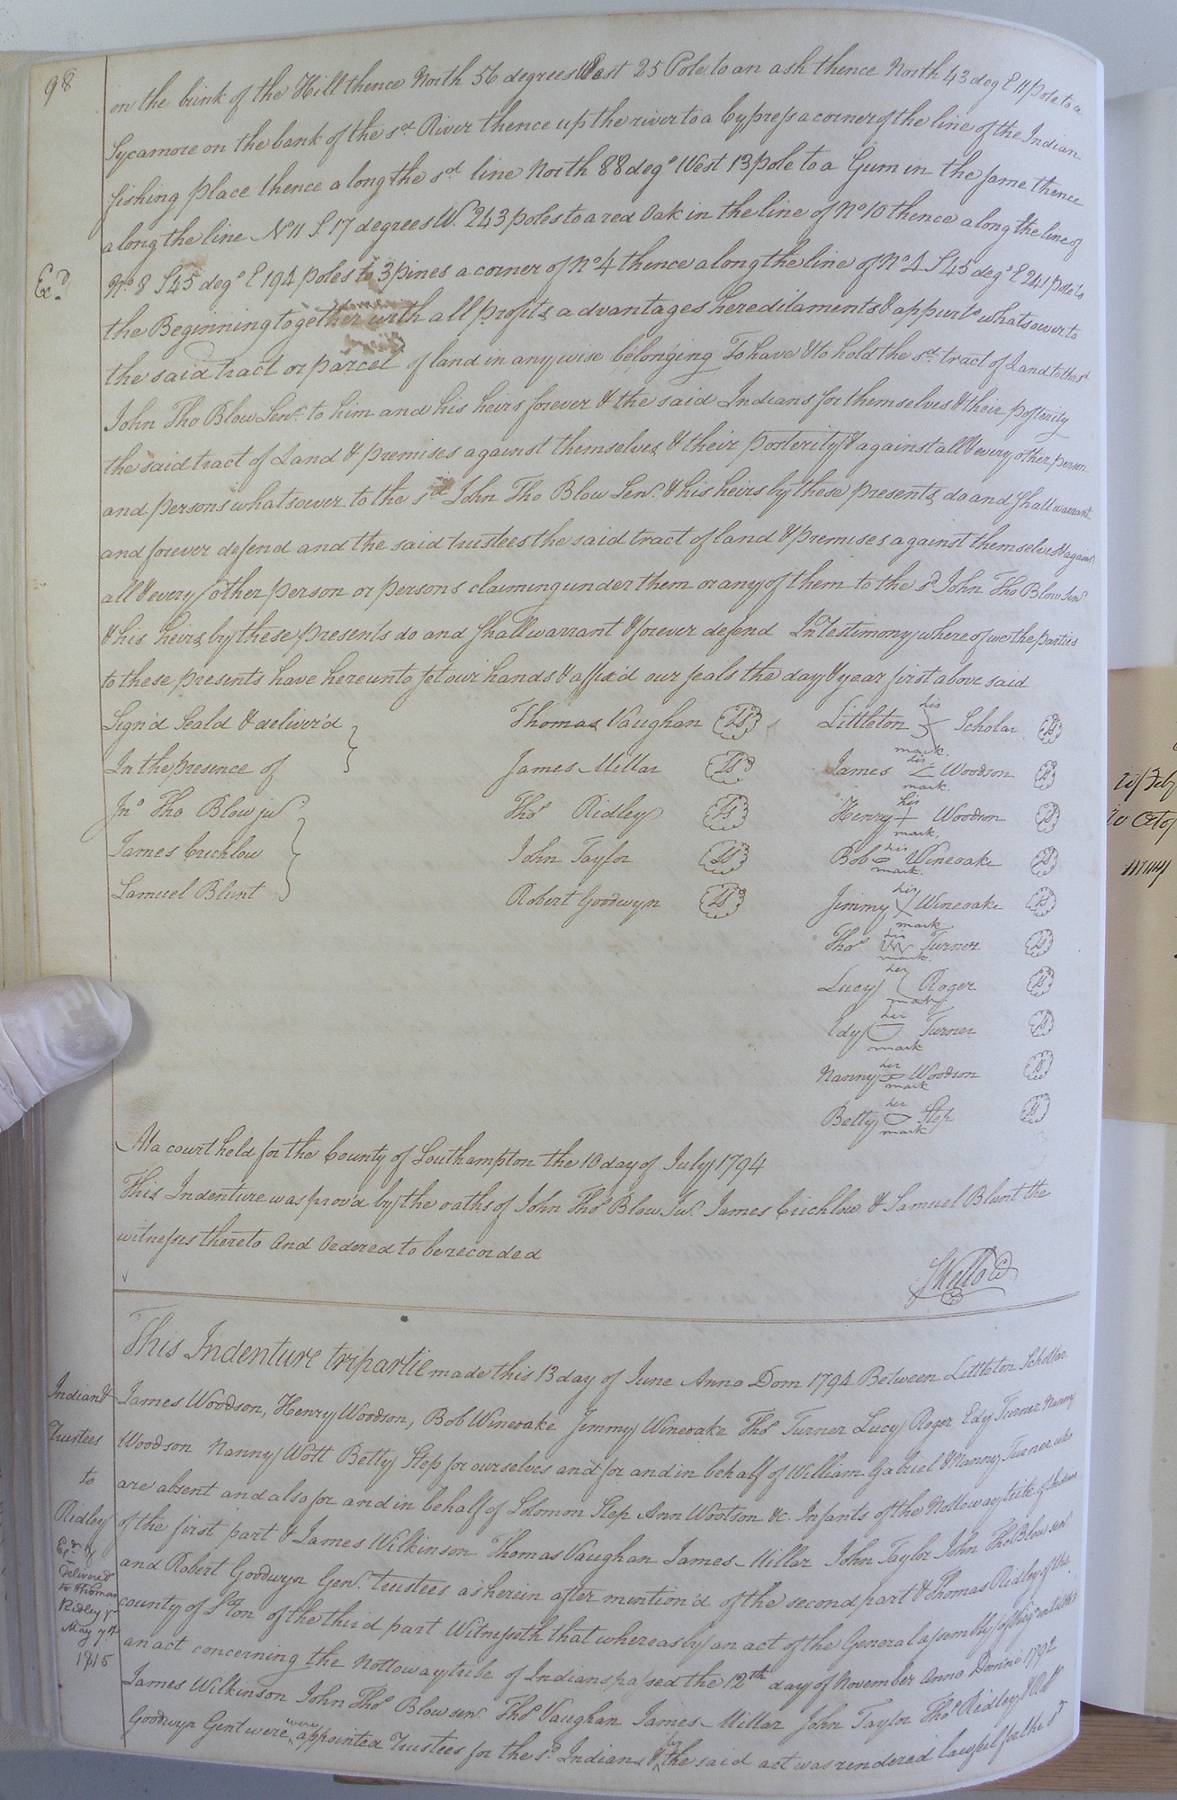 98
on the brink of the Hill thence North 56 degrees West 25 Pole to an ash thence North 43 deg E 11 pole to a
Sycamore on the bank of the sd River thence up the river to a Cypress a corner of the line of the Indian
fishing place thence along the sd line North 88 dego West 13 pole to a Gum in the same thence
along the line No 11 S 17 degrees W. 243 poles to a red Oak in the line of No 10 thence along the line of
Exd
No 8 S 45 dego E 194 poles to 3 pines a corner of No 4 thence along the line of No 4 S 45 dego E 241 pole to
the Beginning together with all profits advantages hereditaments & appurts whatsoever to
the said tract or parcel of land in any wise belonging To have & to hold the sd tract of Land to the sd
John Tho Blow Senr to him and his heirs forever & the said Indians for themselves & their posterity
the said tract of Land & premises against themselves & their posterity & against all & every other person
and persons whatsoever to the sd John Tho Blow Senr & his heirs by these presents do and shall warrant
and forever defend and the said trustees the said tract of land & premises against themselves & against
all & every other person or persons claiming under them or any of them to the sd John Tho Blow Senr
& his heirs by these presents do and shall warrant & forever defend In testimony whereof we the parties
to these presents have hereunto set our hands & affix'd our seals the day & year first above said
Sign'd Seal'd & deliver'd
In the presence of
Jno Tho Blow jur
James Crichlow
Samuel Blunt
Thomas Vaughan Ls
James Millar Ls
Thos Ridley Ls
John Taylor Ls
Robert Goodwyn Ls
Littleton his mark Scholar Ls
James his mark Woodson Ls
Henry his mark Woodson Ls
Bob his mark Wineoake Ls
Jimmy his mark Wineoake Ls
Thos his mark Turner Ls
Lucy her mark Roger Ls
Edy her mark Turner Ls
Nanny her mark Woodson Ls
Betty her mark Step Ls
At a court held for the County of Southampton the 10 day of July 1794
This Indenture was prov'd by the oaths of John Thos Blow Jur. James Crichlow & Samuel Blunt the
witnesses thereto And Ordered to be recorded
This Indenture tripartie made this 13 day of June Anno Dom 1794 Between Littleton Scholar
James Woodson, Henry Woodson, Bob Wineoake Jimmy Wineoake Thos Turner Lucy Roger Edy Turner Nanny
Woodson Nanny Wott Betty Step for ourselves and for and in behalf of William Gabriel & Nanny Turner who
are absent and also for and in behalf of Solomon Step Ann Wootson &c. Infants of the Nottoway tribe of Indians
of the first part & James Wilkinson Thomas Vaughan James Millar John Taylor John Thos Blow senr
and Robert Goodwyn Gent. trustees as herein after mention'd of the second part & Thomas Ridley of the
county of S'ton of the third part Witnesseth that whereas by an act of the General assembly
an act concerning the Nottoway tribe of Indians passed the 12th day of November Anno Domino 1792
James Wilkinson John Thos Blow senr Thos Vaughan James Millar John Taylor Thos Ridley & Robt
Goodwyn Gent were were appointed Trustees for the sd Indians & by the said act was rendered lawful for the sd
Indians
Trustees
to
Ridley
Exd &
Delivered
to Thomas
Ridley Jr
May 7th
1815